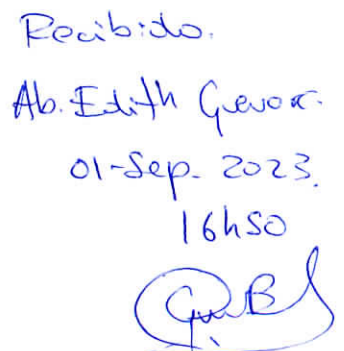 Recibido.
Ab. Edith
01-Sep. 2023.
16h50